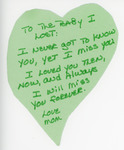 To The Baby I
Lost:
I Never Got To Know
You, Yet I miss you
I Loved you Then,
Now, and Always
I will miss
You Forever.
Love
Mom